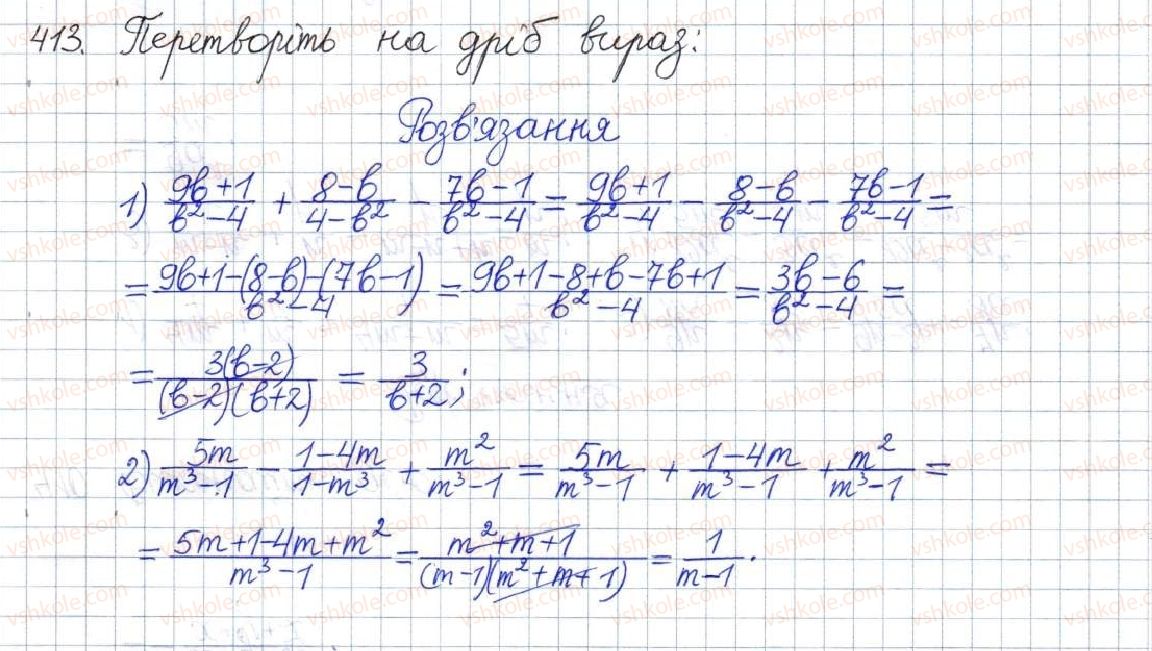 413. Перетворіть на дріб вираз:
Розв'язання
1) (9b+1)/(b²-4) + (8-b)/(4-b²) - (7b-1)/(b²-4) = (9b+1)/(b²-4) - (8-b)/(b²-4) - (7b-1)/(b²-4) =
= (9b+1-(8-b)-(7b-1))/(b²-4) = (9b+1-8+b-7b+1)/(b²-4) = (3b-6)/(b²-4) =
= 3(b-2)/((b-2)(b+2)) = 3/(b+2);
2) 5m/(m³-1) - (1-4m)/(1-m³) + m²/(m³-1) = 5m/(m³-1) + (1-4m)/(m³-1) + m²/(m³-1) =
= (5m+1-4m+m²)/(m³-1) = (m²+m+1)/((m-1)(m²+m+1)) = 1/(m-1).
vshkole.com